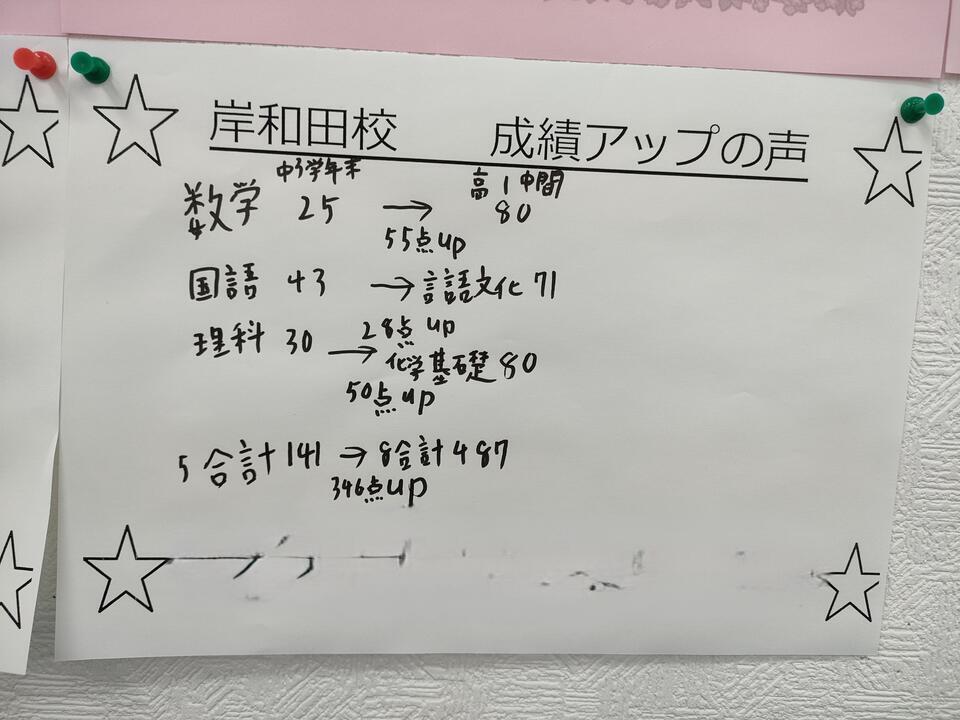 岸和田校 成績アップの声
中3学年末 高1中間
数学 25 → 80
55点up
国語 43 → 言語文化 71
28点up
理科 30 → 化学基礎 80
50点up
5合計141 → 8合計487
346点up